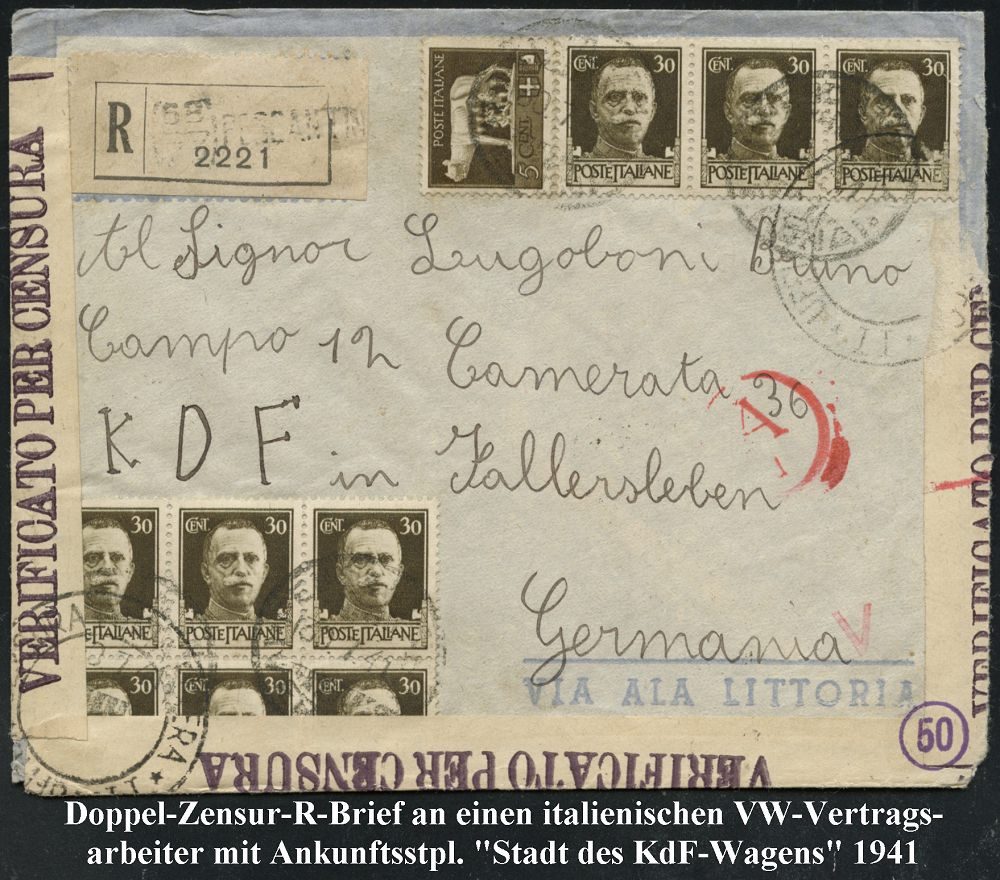 R
2221
POSTE ITALIANE
5 CENT
CENT. 30
POSTE ITALIANE
CENT. 30
POSTE ITALIANE
CENT. 30
POSTE ITALIANE
Al Signor Lugoboni Bruno
Campo 12 Camerata 36
K D F in Fallersleben
Germania
A
V
VIA ALA LITTORIA
VERIFICATO PER CENSURA
VERIFICATO PER CE
30
POSTE ITALIANE
CENT. 30
POSTE ITALIANE
CENT. 30
POSTE ITALIANE
30
CENT. 30
CENT. 30
50
VERIFICATO PER CENSURA
Doppel-Zensur-R-Brief an einen italienischen VW-Vertrags-
arbeiter mit Ankunftsstpl. "Stadt des KdF-Wagens" 1941